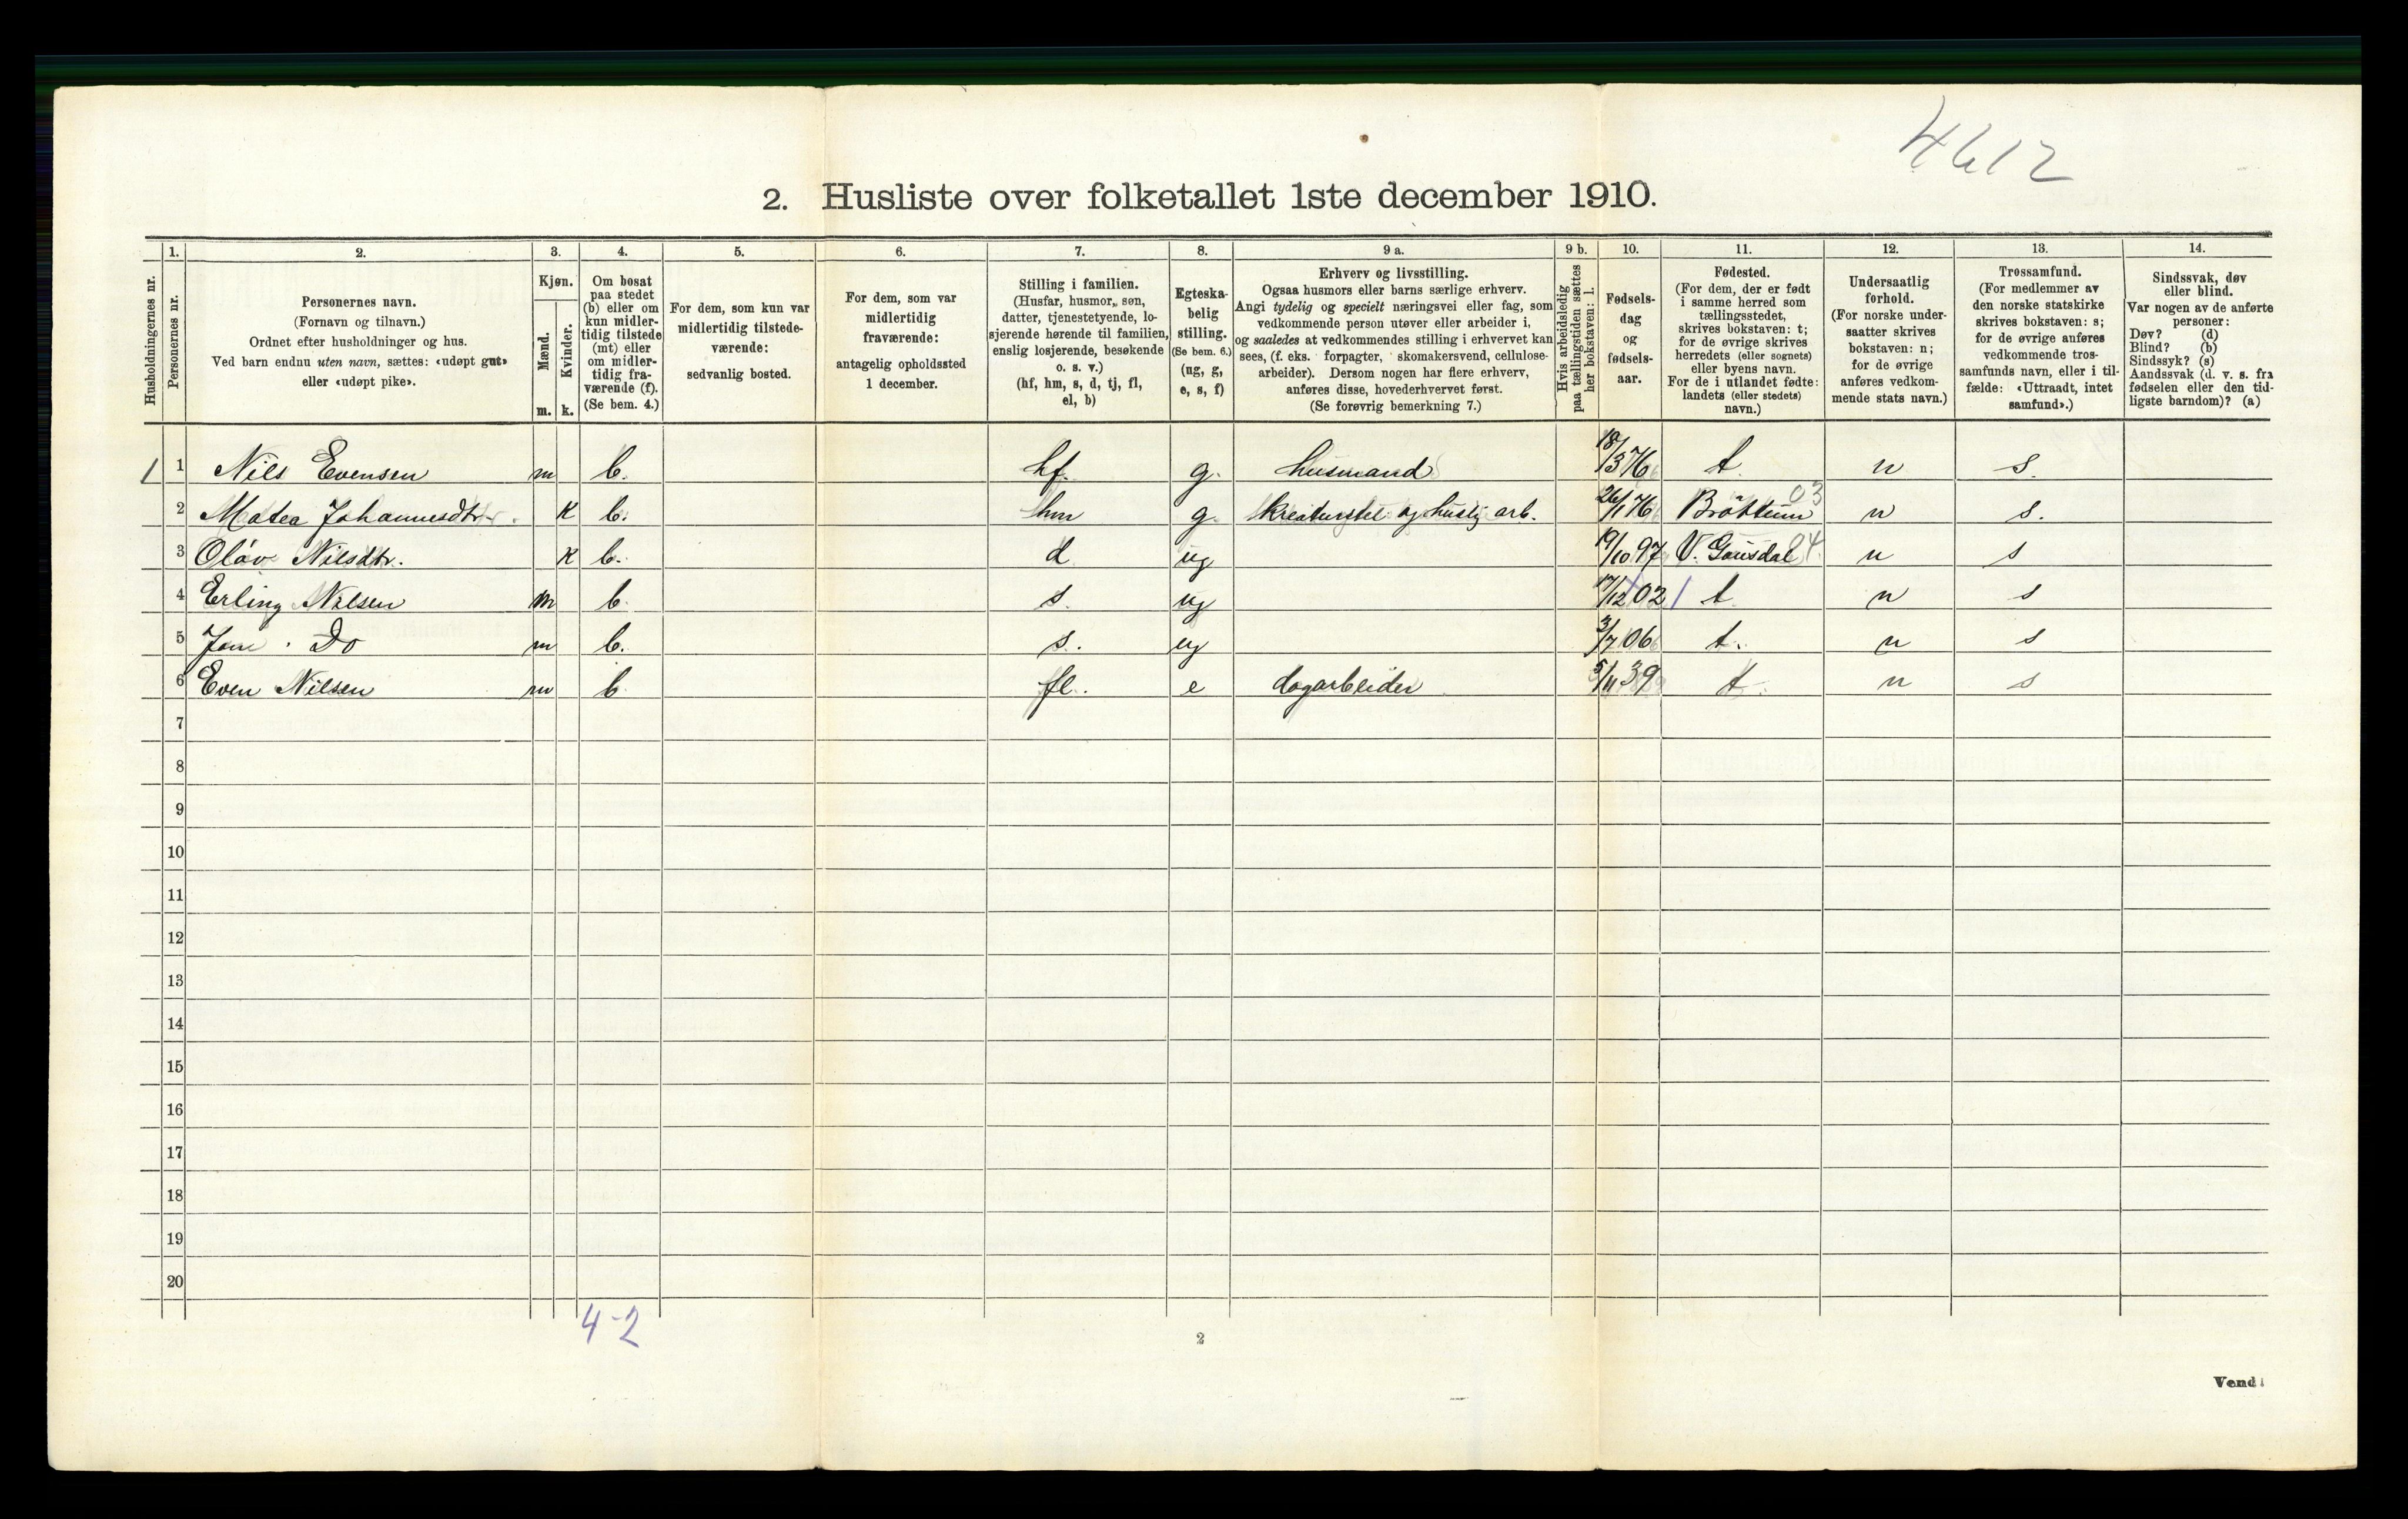 4612
2. Husliste over folketallet 1ste december 1910.
Husholdningernes nr.
1. Personernes nr.
2. Personernes navn.
(Fornavn og tilnavn.)
Ordnet efter husholdninger og hus.
Ved barn endnu uten navn, sættes: «udøpt gut»
eller «udøpt pike».
3. Kjøn.
Mænd. m.
Kvinder. k.
4. Om bosat
paa stedet
(b) eller om
kun midler-
tidig tilstede
(mt) eller
om midler-
tidig fra-
værende (f).
(Se bem. 4.)
5. For dem, som kun var
midlertidig tilstede-
værende:
sedvanlig bosted.
6. For dem, som var
midlertidig
fraværende:
antagelig opholdssted
1 december.
7. Stilling i familien.
(Husfar, husmor, søn,
datter, tjenestetyende, lo-
sjerende hørende til familien,
enslig losjerende, besøkende
o. s. v.)
(hf, hm, s, d, tj, fl,
el, b)
8. Egteska-
belig
stilling.
(Se bem. 6.)
(ug, g,
e, s, f)
9 a. Erhverv og livsstilling.
Ogsaa husmors eller barns særlige erhverv.
Angi tydelig og specielt næringsvei eller fag, som
vedkommende person utøver eller arbeider i,
og saaledes at vedkommendes stilling i erhvervet kan
sees, (f. eks. forpagter, skomakersvend, cellulose-
arbeider). Dersom nogen har flere erhverv,
anføres disse, hovederhvervet først.
(Se forøvrig bemerkning 7.)
9 b. Hvis arbeidsledig
paa tællingstiden sættes
her bokstaven: l.
10. Fødsels-
dag
og
fødsels-
aar.
11. Fødested.
(For dem, der er født
i samme herred som
tællingsstedet,
skrives bokstaven: t;
for de øvrige skrives
herredets (eller sognets)
eller byens navn.
For de i utlandet fødte:
landets (eller stedets)
navn.)
12. Undersaatlig
forhold.
(For norske under-
saatter skrives
bokstaven: n;
for de øvrige
anføres vedkom-
mende stats navn.)
13. Trossamfund.
(For medlemmer av
den norske statskirke
skrives bokstaven: s;
for de øvrige anføres
vedkommende tros-
samfunds navn, eller i til-
fælde: «Uttraadt, intet
samfund».)
14. Sindssvak, døv
eller blind.
Var nogen av de anførte
personer:
Døv? (d)
Blind? (b)
Sindssyk? (s)
Aandssvak (d. v. s. fra
fødselen eller den tid-
ligste barndom)? (a)
1 1 Nils Evensen m b. hf. g. husmand 18/3 76 t. n s.
2 Matea Johannesdtr. k b. hm g. kreaturstel og huslig arb. 26/1 76 Brøttum 03 n s.
3 Oláv Nilsdtr. k b. d ug 19/10 97 V. Gausdal 24 n s
4 Erling Nilsen m b. s. ug 17/12 02 t n s
5 Jon Do m b. s. ug 3/7 06 t. n s
6 Even Nilsen m b fl. e dagarbeider 5/11 39 t. n s
7
8
9
10
11
12
13
14
15
16
17
18
19
20
4-2
2
Vend!